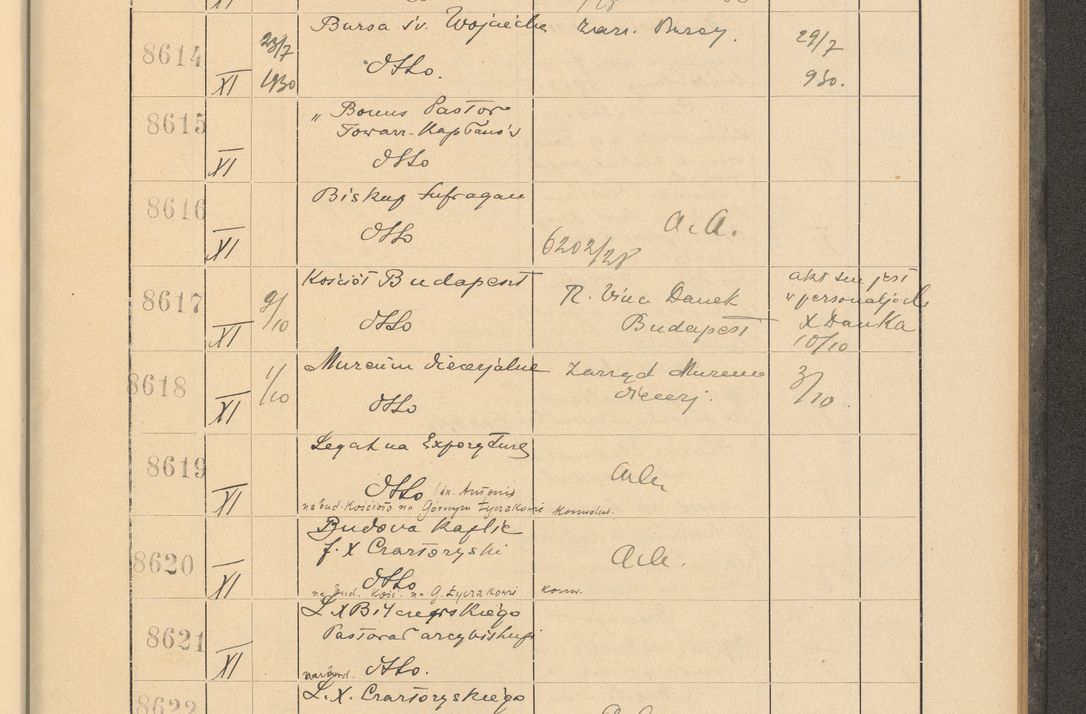 8614 XI 23/7 1930 Bursa św. Wojciecha Zarz. Bursy. 29/7
Otto. 930.
8615 XI „Bonus Pastor
Towarz. Kapłanów
Otto
8616 XI Biskup Sufragan a. A.
Otto 6202/28
8617 XI 9/10 Kościół Budapeszt X. Vinc Danek akt ten jest
Otto Budapeszt w personaljach
X Danka
10/10
8618 XI 1/10 Muzeum diecezjalne Zarząd Muzeum 3/10
Otto diecezj.
8619 XI Legat na Expozyturę
Otto św. Antonie
na bud. Kościoła na Górnym Łyczakowie
8620 XI Budowa Kaplic
f. X Czartoryski
Otto
na bud. Kośc. na G. Łyczakowie Konw.
8621 XI L. X Bilczewskiego
Pastorał arcybiskupi
Otto.
8622 L. X. Czartoryskiego